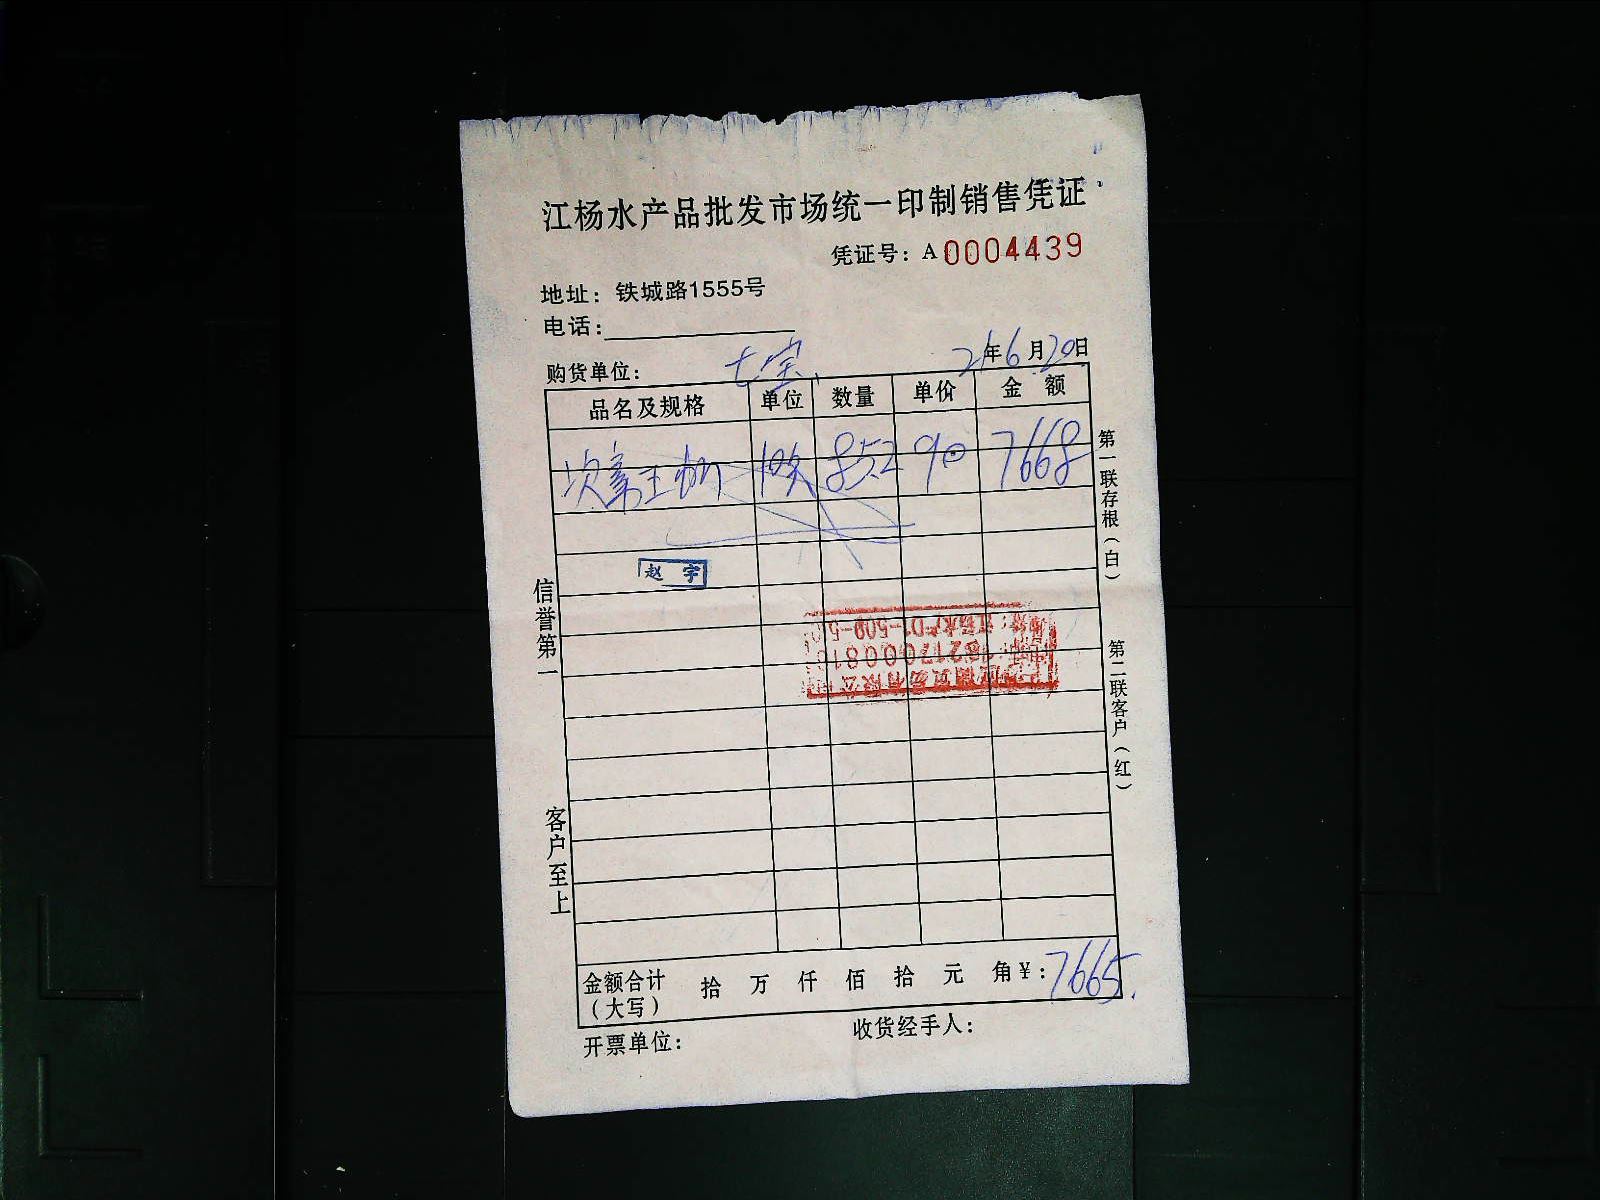 江杨水产品批发市场统一印制销售凭证
凭证号：A 0004439
地址：铁城路1555号
电话：
购货单位：七宝 21年6月20日
品名及规格 单位 数量 单价 金额
85.2 90 7668
赵宇
信誉第一
客户至上
第一联存根（白）
第二联客户（红）
金额合计（大写） 拾 万 仟 佰 拾 元 角 ¥：7665.
开票单位： 收货经手人：